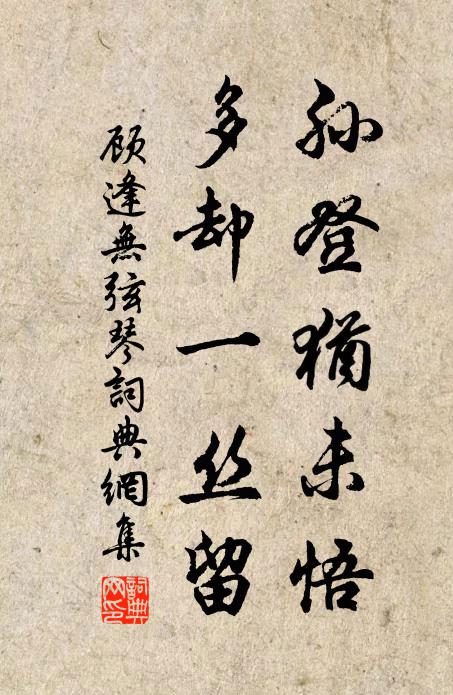 孙登猶未悟
多却一丝留
顾逢無弦琴詞典網集
詞典網印